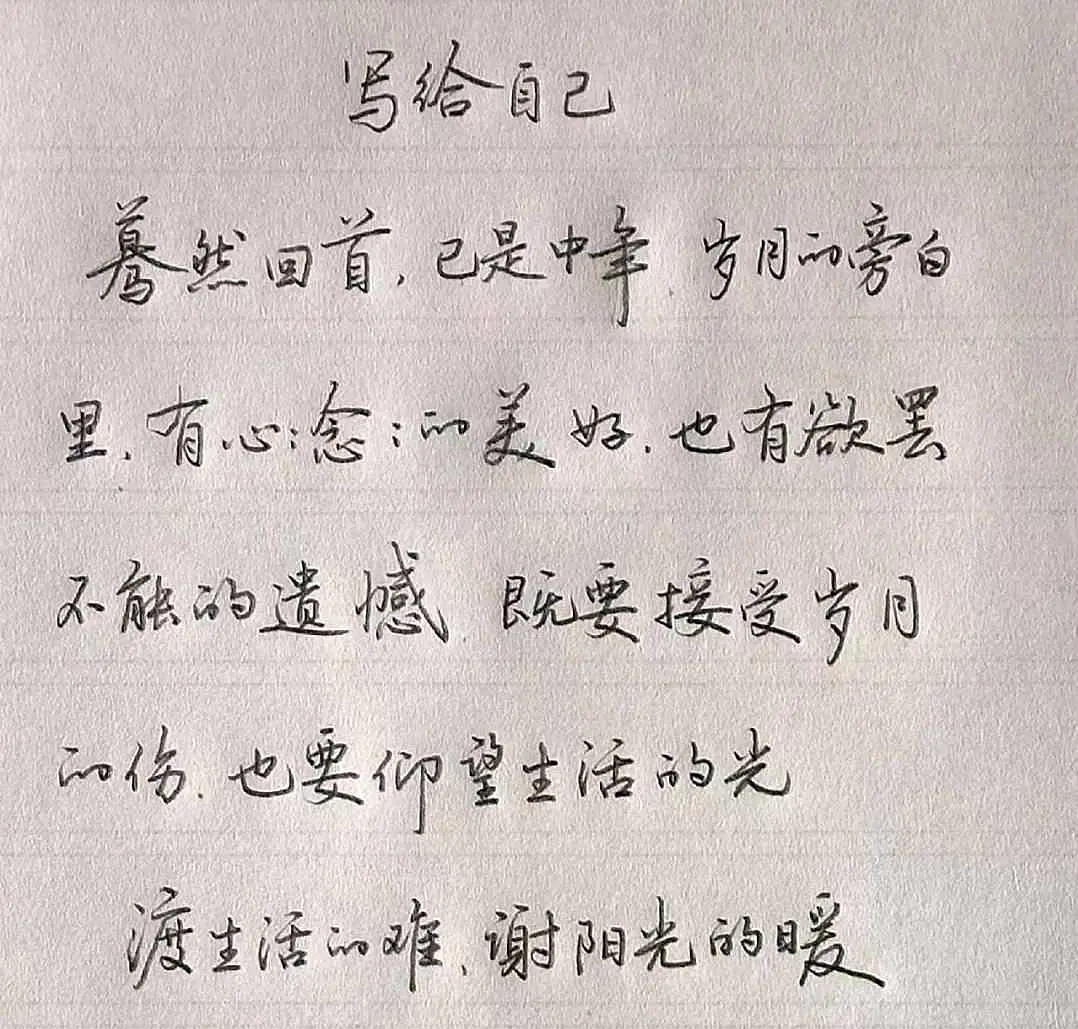 写给自己
蓦然回首,已是中年.岁月的旁白
里,有心心念念的美好.也有欲罢
不能的遗憾.既要接受岁月
的伤.也要仰望生活的光
渡生活的难,谢阳光的暖